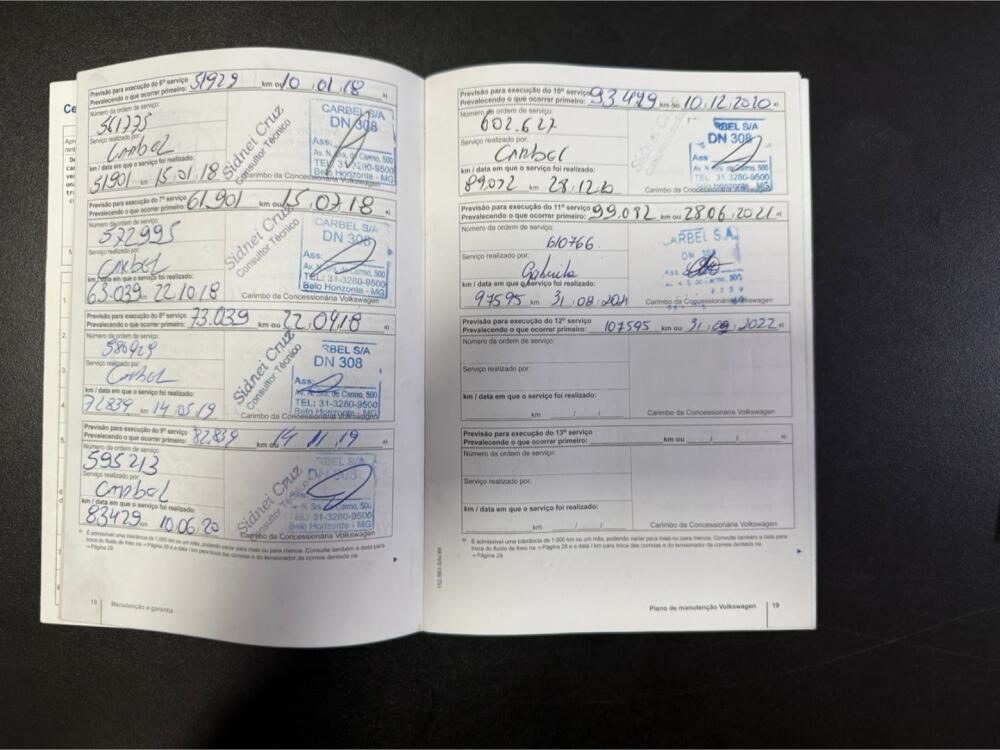 Ce
Previsão para execução do 6º serviço 51929 km ou 10.01.18 a)
Prevalecendo o que ocorrer primeiro:
Número da ordem de serviço:
561775
Serviço realizado por:
CARBEL
km / data em que o serviço foi realizado:
51901 km 15.01.18
Sidnei Cruz
Consultor Técnico
CARBEL S/A
DN 308
Ass:
Av. N. Sra. do Carmo, 500
TEL: 31-3280-9500
Belo Horizonte - MG
Carimbo da Concessionária Volkswagen
Previsão para execução do 7º serviço 61.901 km ou 15.07.18 a)
Prevalecendo o que ocorrer primeiro:
Número da ordem de serviço:
572995
Serviço realizado por:
CARBEL
km / data em que o serviço foi realizado:
63.039 22.10.18
Sidnei Cruz
Consultor Técnico
CARBEL S/A
DN 308
Ass:
Av. N. Sra. do Carmo, 500
TEL: 31-3280-9500
Belo Horizonte - MG
Carimbo da Concessionária Volkswagen
Previsão para execução do 8º serviço 73.039 km ou 22.0418 a)
Prevalecendo o que ocorrer primeiro:
Número da ordem de serviço:
586929
Serviço realizado por:
CARBEL
km / data em que o serviço foi realizado:
72839 km 14.05.19
Sidnei Cruz
Consultor Técnico
RBEL S/A
DN 308
Ass:
Av. N. Sra. do Carmo, 500
TEL: 31-3280-9500
Belo Horizonte - MG
Carimbo da Concessionária Volkswagen
Previsão para execução do 9º serviço 82.839 km ou 14 11 19 a)
Prevalecendo o que ocorrer primeiro:
Número da ordem de serviço:
595213
Serviço realizado por:
CARBEL
km / data em que o serviço foi realizado:
83429 km 10.06.20
Sidnei Cruz
RBEL S/A
DN 308
N. Sra. do Carmo, 500
TEL: 31-3280-9500
Belo Horizonte - MG
Carimbo da Concessionária Volkswagen
a) É admissível uma tolerância de 1.000 km ou um mês, podendo variar para mais ou para menos. Consulte também a data para
troca do fluido de freio na ⇒Página 28 e a data / km para troca das correias e do tensionador da correia dentada na
⇒Página 29.
18 Manutenção e garantia
Previsão para execução do 10º serviço
Prevalecendo o que ocorrer primeiro: 93.429 km ou 10.12.2020 a)
Número da ordem de serviço:
602.627
Serviço realizado por:
CARBEL
km / data em que o serviço foi realizado:
89.072 km 28.12.20
RBEL S/A
DN 308
Ass:
Av. N. Sra. do Carmo, 500
TEL: 31-3280-9500
Horizonte - MG
Carimbo da Concessionária Volkswagen
Previsão para execução do 11º serviço
Prevalecendo o que ocorrer primeiro: 99.082 km ou 28.06.2021 a)
Número da ordem de serviço:
610766.
Serviço realizado por:
Gabriela
km / data em que o serviço foi realizado:
97595 km 31.08.2021
CARBEL S.A.
DN
Ass
Carimbo da Concessionária Volkswagen
Previsão para execução do 12º serviço
Prevalecendo o que ocorrer primeiro: 107595 km ou 31.08.2022 a)
Número da ordem de serviço:
Serviço realizado por:
km / data em que o serviço foi realizado:
km / /
Carimbo da Concessionária Volkswagen
Previsão para execução do 13º serviço
Prevalecendo o que ocorrer primeiro: km ou / / a)
Número da ordem de serviço:
Serviço realizado por:
km / data em que o serviço foi realizado:
km / /
Carimbo da Concessionária Volkswagen
a) É admissível uma tolerância de 1.000 km ou um mês, podendo variar para mais ou para menos. Consulte também a data para
troca do fluido de freio na ⇒Página 28 e a data / km para troca das correias e do tensionador da correia dentada na
⇒Página 29.
Plano de manutenção Volkswagen 19